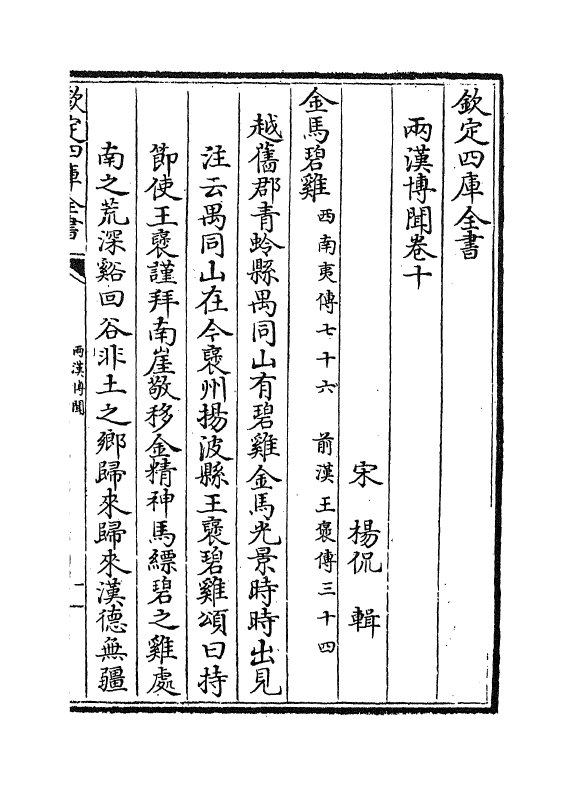 欽定四庫全書
兩漢博聞卷十
宋 楊侃 輯
金馬碧雞 西南夷傳七十六 前漢王褒傳三十四
越舊郡青蛉縣禺同山有碧雞金馬光景時時出見
注云禺同山在今襃州揚波縣王襃碧雞頌曰持
節使王襃謹拜南崖敬移金精神馬縹碧之雞處
南之荒深谿回谷非土之鄉歸來歸來漢德無疆
欽定四庫全書
兩漢博聞
一